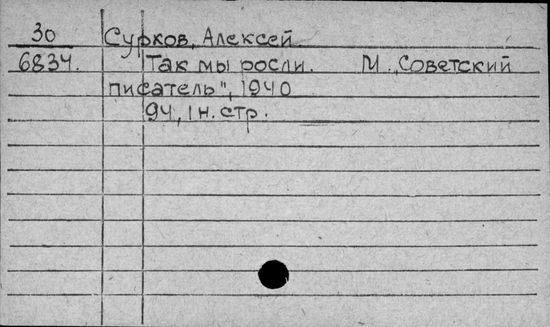 30 Сурков, Алексей.
6834. Так мы росли. М. „Советский
писатель", 1940
94, 1 н. стр.